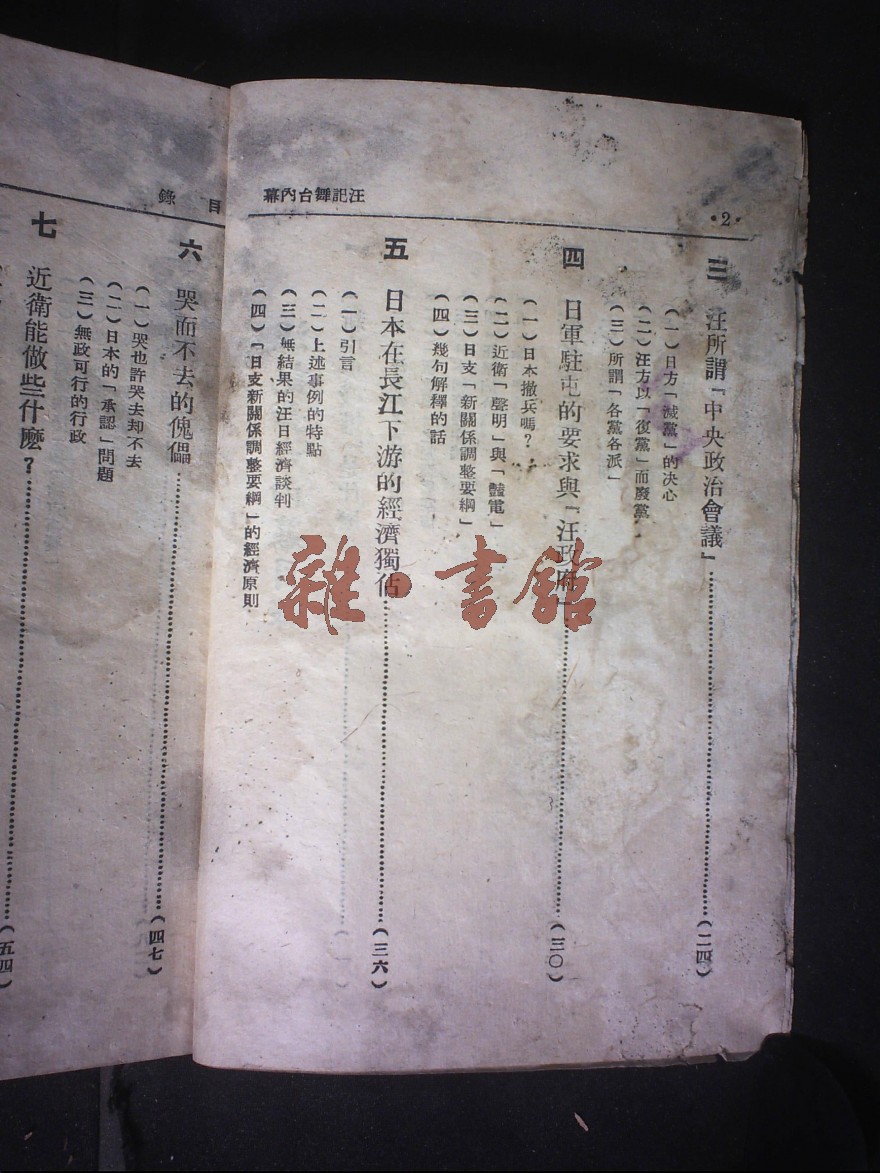 汪記舞台內幕
·2·
三 汪所謂「中央政治會議」……(二四)
(一)日方「滅黨」的决心
(二)汪方以「復黨」而廢黨
(三)所謂「各黨各派」
四 日軍駐屯的要求與「汪政府」……(三〇)
(一)日本撤兵嗎?
(二)近衛「聲明」與「豔電」
(三)日支「新關係調整要綱」
(四)幾句解釋的話
五 日本在長江下游的經濟獨佔……(三六)
(一)引言
(二)上述事例的特點
(三)無結果的汪日經濟談判
(四)「日支新關係調整要綱」的經濟原則
目錄
六 哭而不去的傀儡……(四七)
(一)哭也許哭去却不去
(二)日本的「承認」問題
(三)無政可行的行政
七 近衛能做些什麽?……(五四)
雜·書館